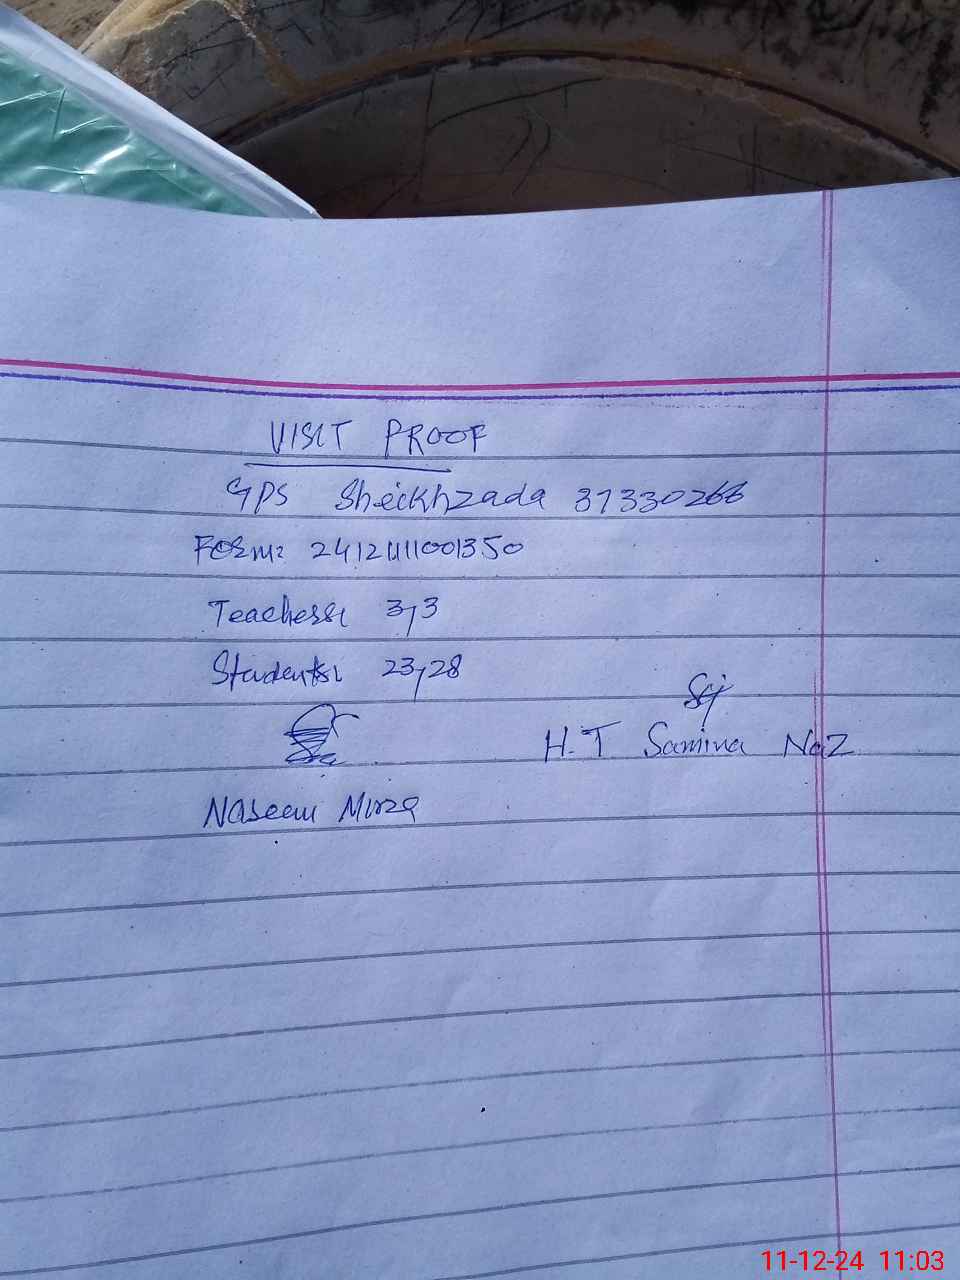 VISIT PROOF
GPS Sheikhzada 37330266
Form: 241211001350
Teachers: 3,3
Students: 23,28
H.T Samina Naz
Naseem Mirza
11-12-24 11:03